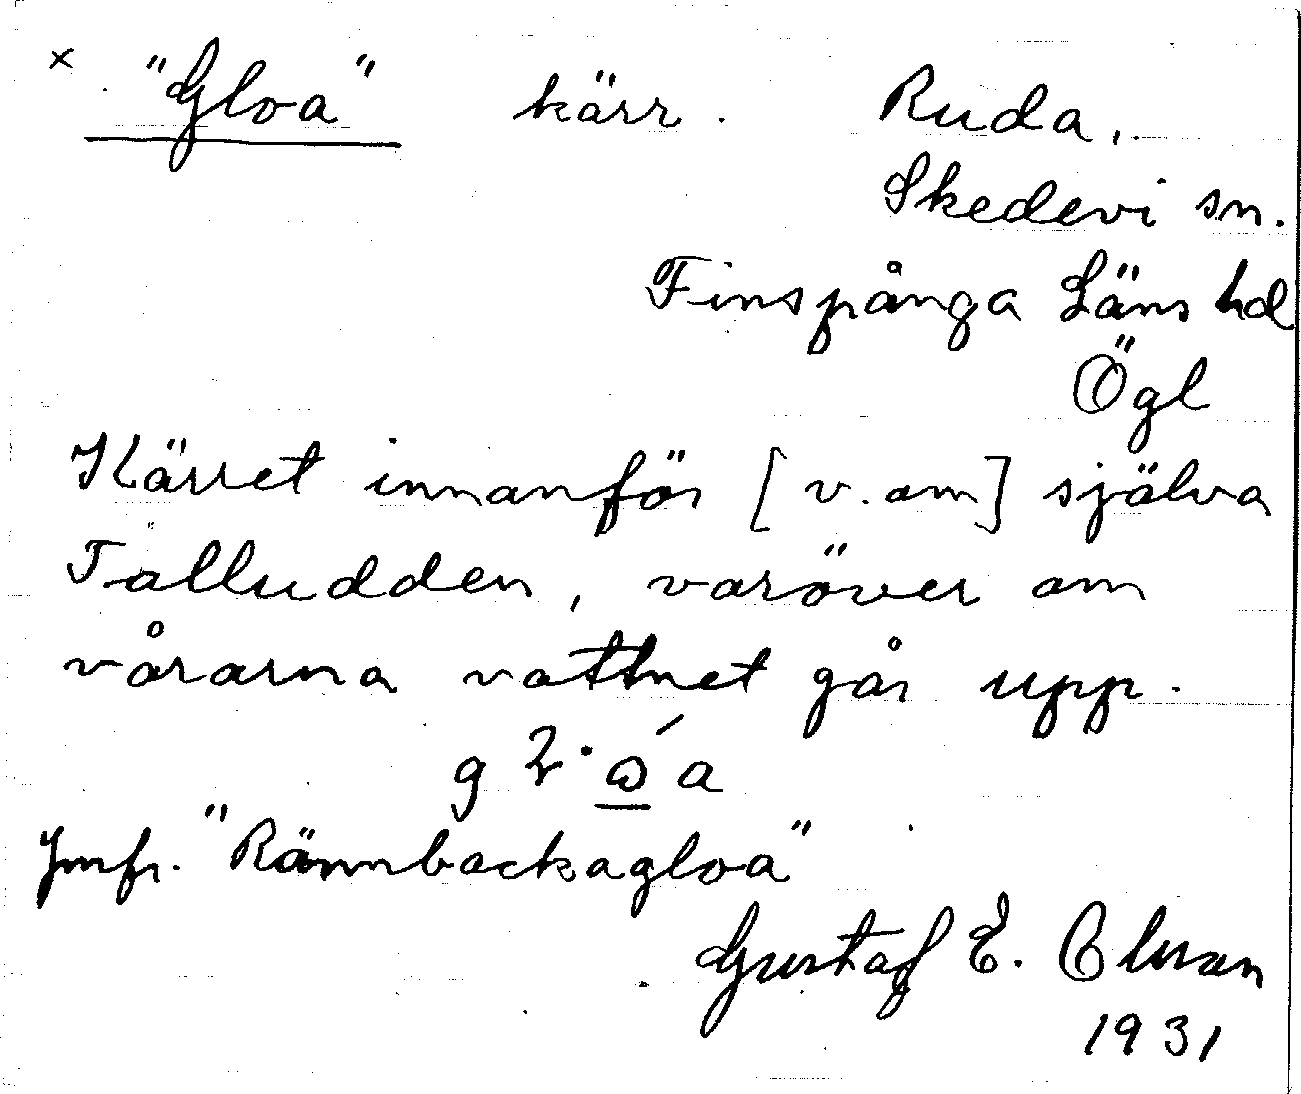 × "Gloa" kärr. Ruda,
Skedevi sn.
Finspånga Läns hd
Ögl
Kärret innanför [v. om] själva
Talludden, varöver om
vårarna vattnet går upp.
Jmfr. "Rännbackagloa"
Gustaf E.
1931